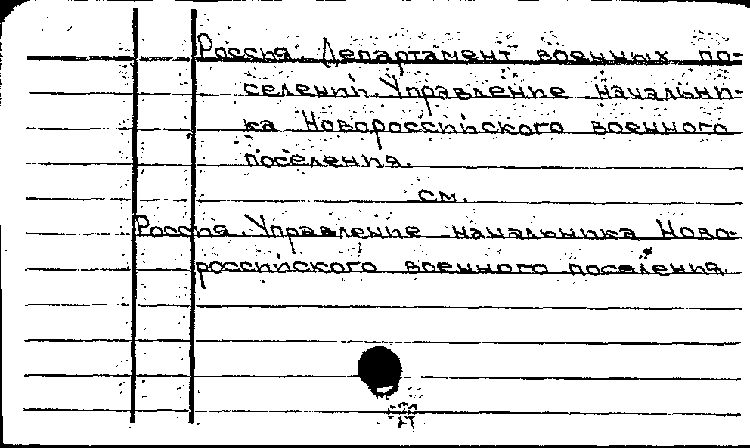 Россия. Департамент военных по-
селений. Управление начальни-
ка Новороссийского военного
поселения.
см.
Россия. Управление начальника Ново-
российского военного поселения.